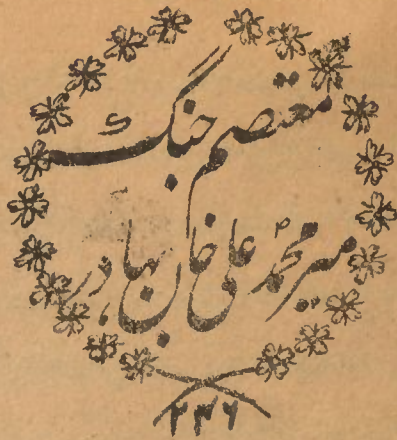 معتصم جنگ
میر محمد علی خان بہادر
۲۳۶